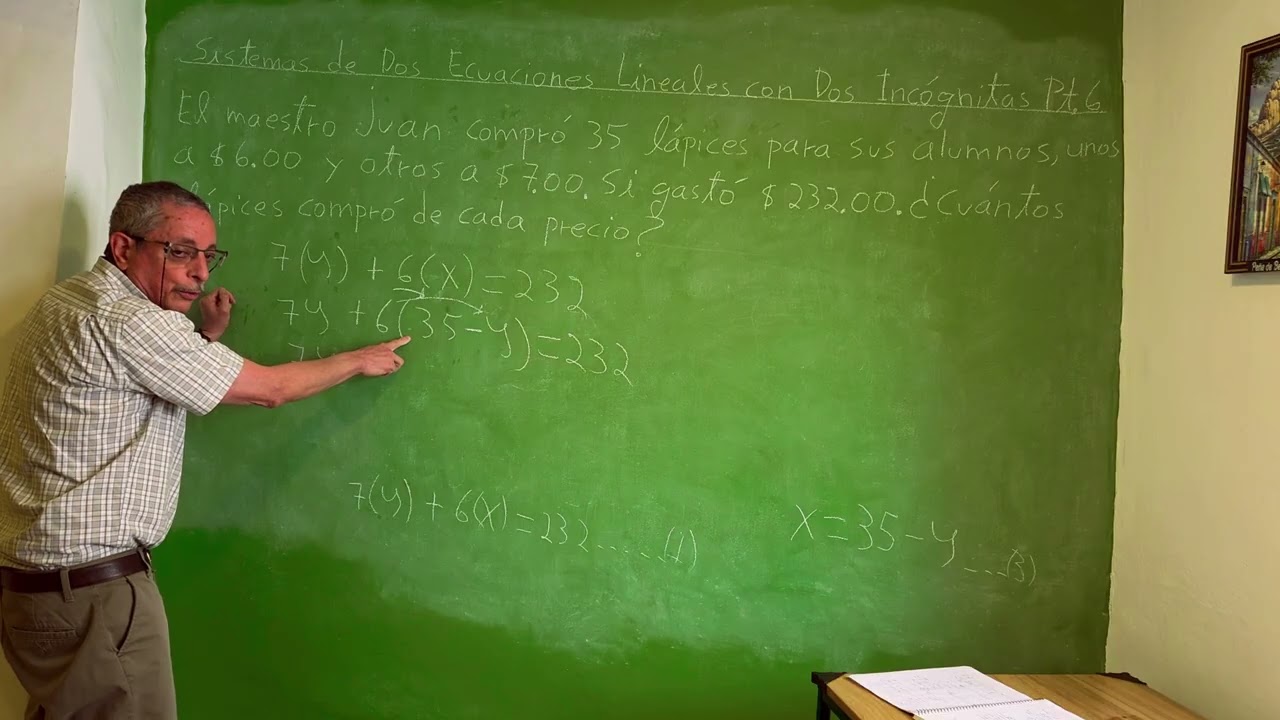 Sistemas de Dos Ecuaciones Lineales con Dos Incógnitas Pt.6
El maestro Juan compró 35 lápices para sus alumnos, unos
a $6.00 y otros a $7.00. Si gastó $232.00. ¿Cuántos
lápices compró de cada precio?
7(y) + 6(x) = 232
7y + 6(35-y) = 232
7y
7(y) + 6(x) = 232 .....(1)
x = 35 - y ...(3)